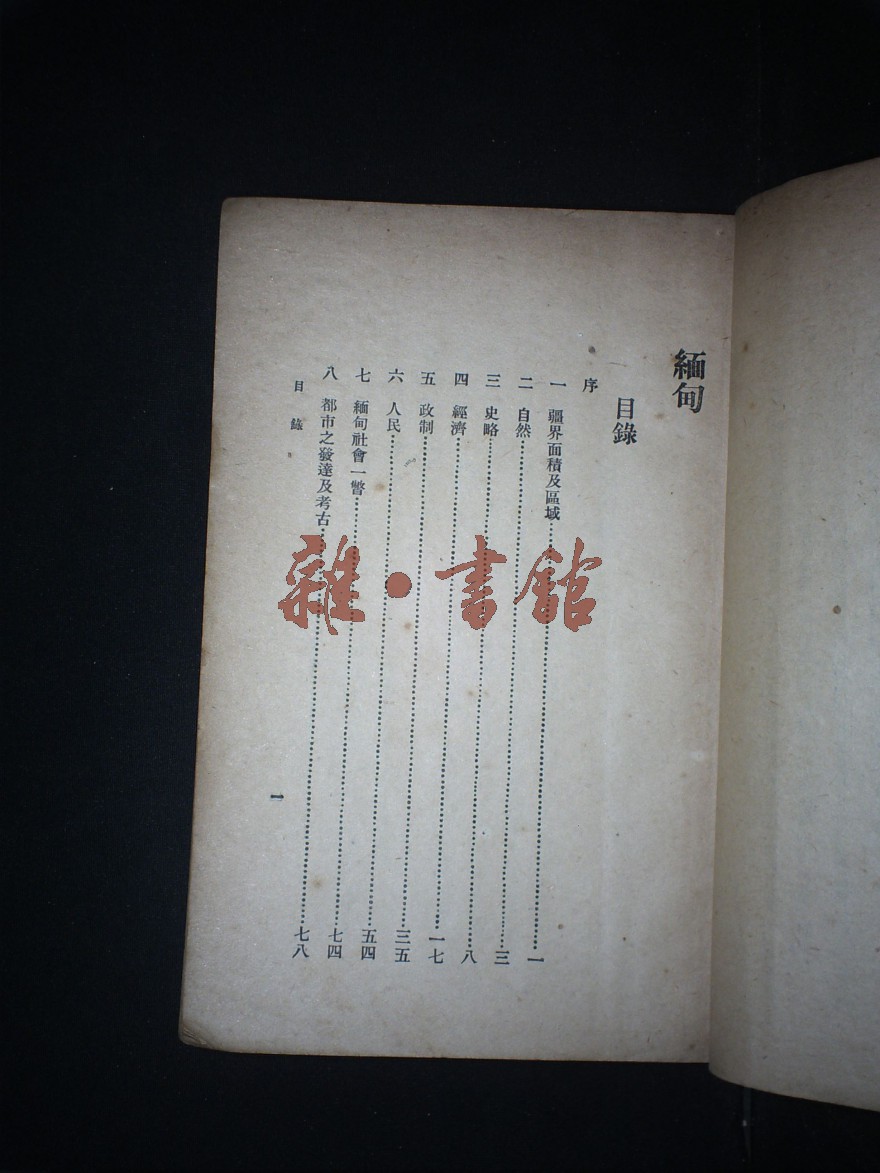 緬甸
目錄
序
一 疆界面積及區域…………一
二 自然…………三
三 史略…………八
四 經濟…………一七
五 政制…………三五
六 人民…………五四
七 緬甸社會一瞥…………七四
八 都市之發達及考古…………七八
目錄
一
雜·書館